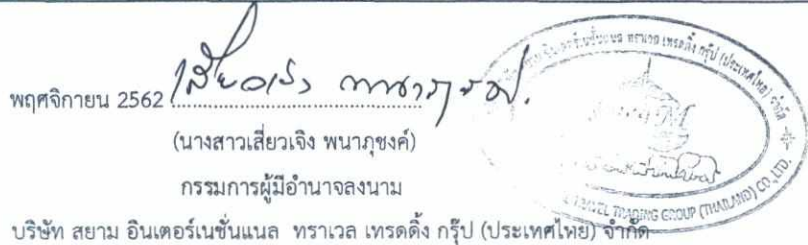 พฤศจิกายน 2562
(นางสาวเสี่ยวเจิง พนาภุชงค์)
กรรมการผู้มีอำนาจลงนาม
บริษัท สยาม อินเตอร์เนชั่นแนล ทราเวล เทรดดิ้ง กรุ๊ป (ประเทศไทย) จำกัด
ทราเวล เทรดดิ้ง กรุ๊ป (ประเทศไทย) จำกัด
TRADING GROUP (THAILAND) CO.,LTD.